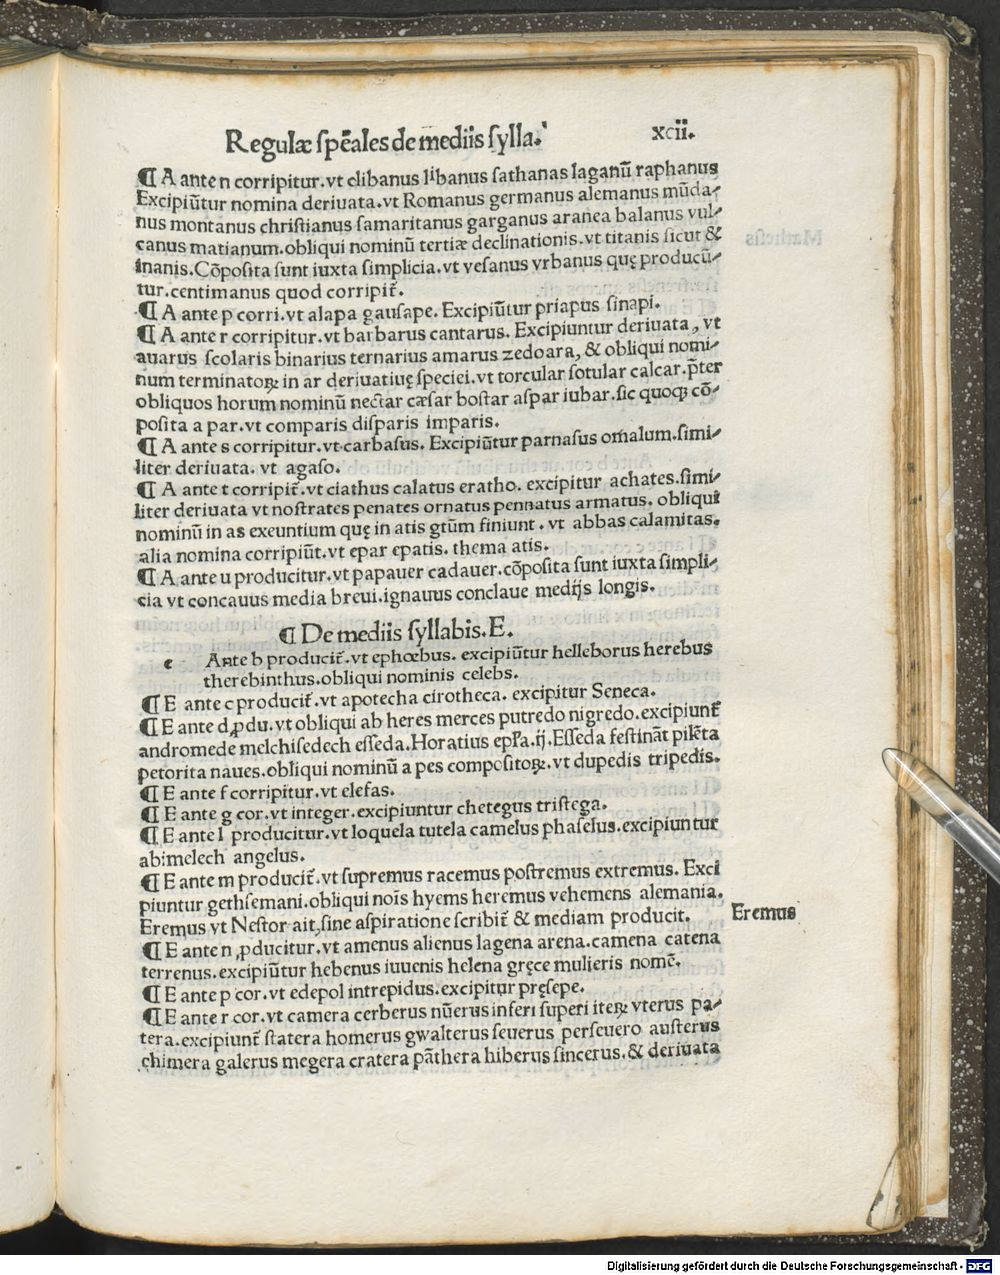 Regulæ spẽales de mediis sylla.
xcii.
¶ A ante n corripitur. vt clibanus libanus sathanas laganũ raphanus
Excipiũtur nomina deriuata. vt Romanus germanus alemanus mũda-
nus montanus christianus samaritanus garganus aranea balanus vul-
canus matianum. obliqui nominũ tertiæ declinationis. vt titanis sicut &
inanis. Cõposita sunt iuxta simplicia. vt vesanus vrbanus quę producũ-
tur. centimanus quod corripit̃.
¶ A ante p corri. vt alapa gausape. Excipiũtur priapus sinapi.
¶ A ante r corripitur. vt barbarus cantarus. Excipiuntur deriuata, vt
auarus scolaris binarius ternarius amarus zedoara, & obliqui nomi-
num terminatoꝝ in ar deriuatiuę speciei. vt torcular sotular calcar. p̃ter
obliquos horum nominũ nectar cæsar bostar aspar iubar. sic quoqꝫ cõ-
posita a par. vt comparis disparis imparis.
¶ A ante s corripitur. vt carbasus. Excipiũtur parnasus omalum. simi-
liter deriuata. vt agaso.
¶ A ante t corripit̃. vt ciathus calatus eratho. excipitur achates. simi-
liter deriuata vt nostrates penates ornatus pennatus armatus. obliqui
nominũ in as exeuntium quę in atis gt̃um finiunt. vt abbas calamitas.
alia nomina corripiũt. vt epar epatis. thema atis.
¶ A ante u producitur. vt papauer cadauer. cõposita sunt iuxta simpli-
cia vt concauus media breui. ignauus conclaue medijs longis.
¶ De mediis syllabis. E.
e Ante b producit̃. vt ephœbus. excipiũtur helleborus herebus
therebinthus. obliqui nominis celebs.
¶ E ante c producit̃. vt apotecha cirotheca. excipitur Seneca.
¶ E ante d ꝓdu. vt obliqui ab heres merces putredo nigredo. excipiunt̃
andromede melchisedech esseda. Horatius ep̃ła. ij. Esseda festinãt pilẽta
petorita naues. obliqui nominũ a pes compositoꝝ. vt dupedis tripedis.
¶ E ante f corripitur. vt elefas.
¶ E ante g cor. vt integer. excipiuntur chetegus tristega.
¶ E ante l producitur. vt loquela tutela camelus phaselus. excipiuntur
abimelech angelus.
¶ E ante m producit̃. vt supremus racemus postremus extremus. Exci
piuntur gethsemani. obliqui noı̃s hyems heremus vehemens alemania.
Eremus vt Nestor ait, sine aspiratione scribit̃ & mediam producit.
Eremus
¶ E ante n ꝓducitur. vt amenus alienus lagena arena. camena catena
terrenus. excipiũtur hebenus iuuenis helena gręce mulieris nomẽ.
¶ E ante p cor. vt edepol intrepidus. excipitur pręsepe.
¶ E ante r cor. vt camera cerberus nũerus inferi superi iteꝝ vterus pa-
tera. excipiunt̃ statera homerus gwalterus seuerus perseuero austerus
chimera galerus megera cratera pãthera hiberus sincerus. & deriuata
Digitalisierung gefördert durch die Deutsche Forschungsgemeinschaft - DFG